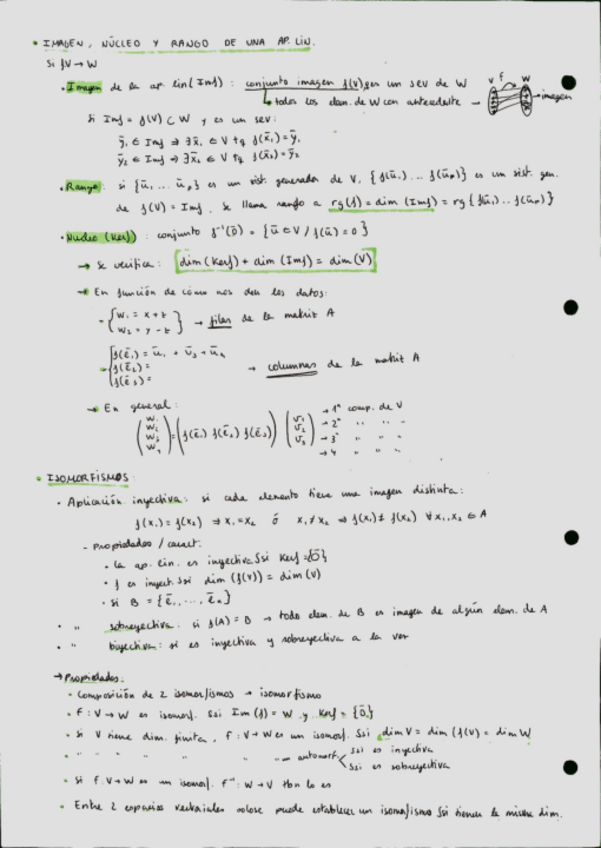 • IMAGEN, NÚCLEO Y RANGO DE UNA AP. LIN.
Si f:V→W
• Imagen de la ap. lin (Imf) : conjunto imagen f(V), es un sev de W
↳ todos los elem. de W con antecedente → V f W → imagen
Si Imf = f(V) ⊂ W y es un sev:
ȳ₁ ∈ Imf ⇒ ∃x̄₁ ∈ V tq f(x̄₁) = ȳ₁
ȳ₂ ∈ Imf ⇒ ∃x̄₂ ∈ V tq f(x̄₂) = ȳ₂
• Rango: si {ū₁ ... ūp} es un sist. generador de V, {f(ū₁) ... f(ūp)} es un sist. gen.
de f(V) = Imf, se llama rango a rg(f) = dim (Imf) = rg{f(ū₁)...f(ūp)}
• Núcleo (Kerf) : conjunto f⁻¹(0̄) = {ū ∈ V / f(ū) = 0}
→ Se verifica: dim (Kerf) + dim (Imf) = dim (V)
→ En función de cómo nos den los datos:
- {w₁ = x + t
w₂ = y - t} → filas de la matriz A
- {f(ē₁) = ū₁ + ū₃ + ū₄
f(ē₂) =
f(ē₃) = → columnas de la matriz A
→ En general:
(w₁ w₂ w₃ w₄) = (f(ē₁) f(ē₂) f(ē₃)) (v₁ v₂ v₃) → 1ª comp. de V
→ 2ª " " "
→ 3ª " " "
→ 4 " " "
• ISOMORFISMOS:
• Aplicación inyectiva: si cada elemento tiene una imagen distinta:
f(x₁) = f(x₂) ⇒ x₁ = x₂ ó x₁ ≠ x₂ ⇒ f(x₁) ≠ f(x₂) ∀x₁,x₂ ∈ A
- Propiedades / caract:
• la ap. lin. es inyectiva Ssi Kerf = {0̄}
• f es inyect. Ssi dim (f(V)) = dim (V)
• Si B = {ē₁, ..., ēn}
• " sobreyectiva: si f(A) = B → todo elem. de B es imagen de algún elem. de A
• " biyectiva: si es inyectiva y sobreyectiva a la vez
→ Propiedades:
• Composición de 2 isomorfismos → isomorfismo
• f: V→W es isomorf. Ssi Im (f) = W y Kerf = {0̄}
• Si V tiene dim. finita, f: V→W es un isomorf. Ssi dim V = dim (f(V) = dim W
• " " " " " " → automorf. Ssi es inyectiva
Ssi es sobreyectiva
• Si f: V→W es un isomorf. f⁻¹: W→V tbn lo es
• Entre 2 espacios vectoriales solose puede establecer un isomorfismo Ssi tienen la misma dim.